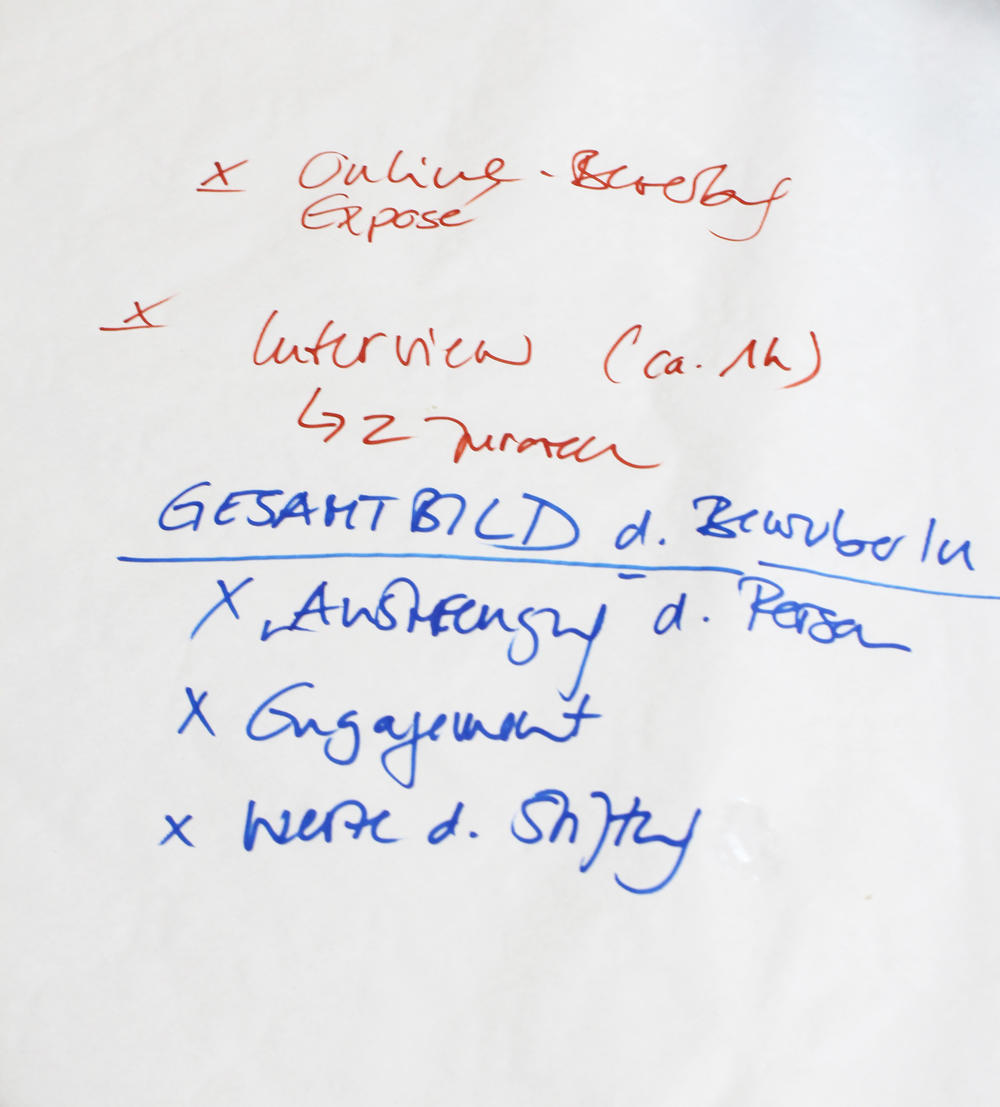 x Online-Bewerbung
Expose
x Interview (ca. 1h)
↳ 2 Juroren
GESAMTBILD d. BewerberIn
x d. Person
x Engagement
x Werte d. Stiftung